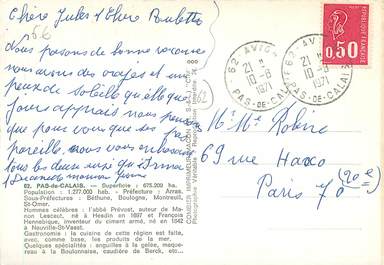 Chère Jules & Chère Paulette
Nous passons de bonne vacance
nous avons des orages et un
peux de soleille quelque
jours apprais nous pensons
que pour vous que ses pas
pareille, nous vous embrassons
tous les deux
62. PAS-de-CALAIS. - Superficie : 675.009 ha.
Population : 1.277.000 hab. - Préfecture : Arras
Sous-Préfectures : Béthune, Boulogne, Montreuil,
St-Omer.
Hommes célèbres : l'abbé Prévost, auteur de Ma-
non Lescaut, né à Hesdin en 1697 et François
Hennebique, inventeur du ciment armé, né en 1842
à Neuville-St-Vaast.
Gastronomie : la cuisine de cette région est faite,
avec, comme base, les produits de la mer.
Quelques spécialités : anguilles à la gelée, maque-
reau à la Boulonnaise, caudière de Berck, etc...
62
62 AVIO
21 H
10-8
1971
PAS-DE-CALAIS
62 AVIO
21 H
10-8
1971
PAS-DE-CALAIS
RÉPUBLIQUE FRANÇAISE
0,50
POSTES
Mr Me Robine
69 rue Haxo
Paris 20e